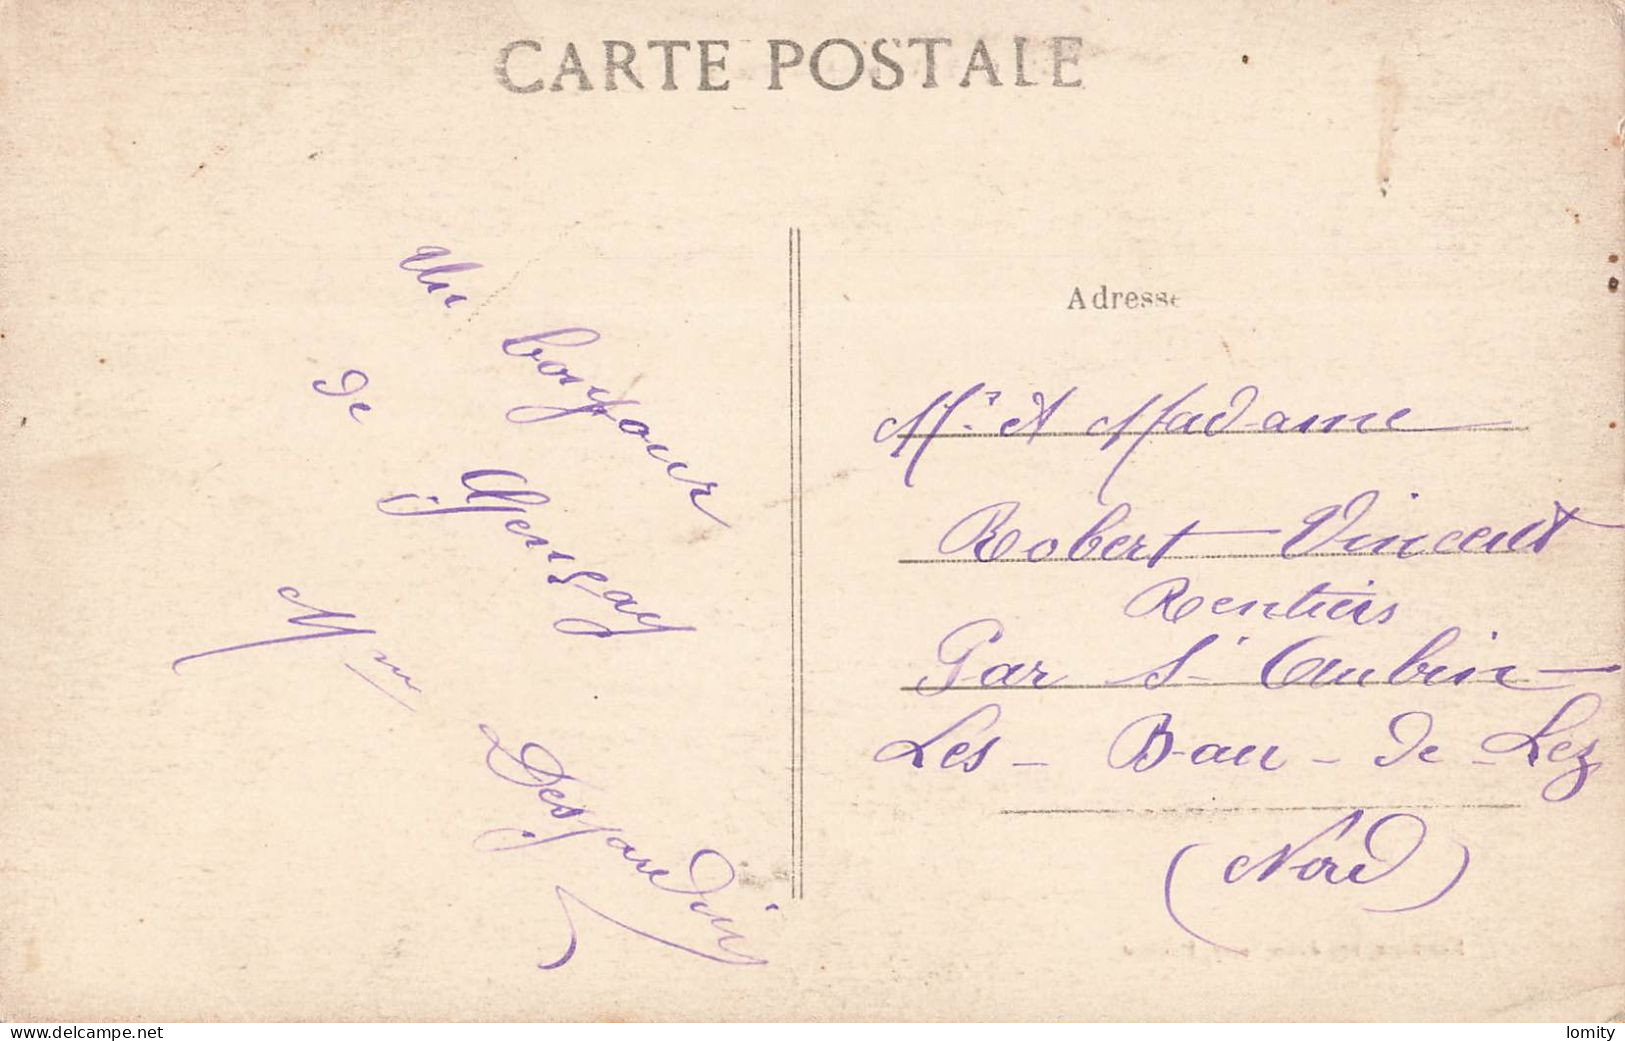 CARTE POSTALE
Un bonjour
de Gensay
Mme Desjardins
Adresse
Mr et Madame
Robert Vincent
Rentiers
Par St Aubin
Les - Bau - de - Lez
(Nord)
www.delcampe.net
lomity